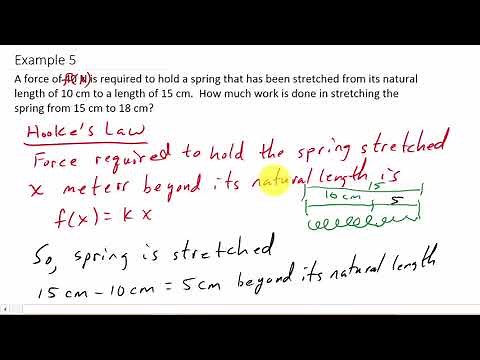 Example 5
A force of is required to hold a spring that has been stretched from its natural
length of 10 cm to a length of 15 cm. How much work is done in stretching the
spring from 15 cm to 18 cm?
Hooke's Law
Force required to hold the spring stretched
x meters beyond its natural length is
15
10 cm 5
f(x) = k x
So, spring is stretched
15 cm - 10 cm = 5 cm beyond its natural length